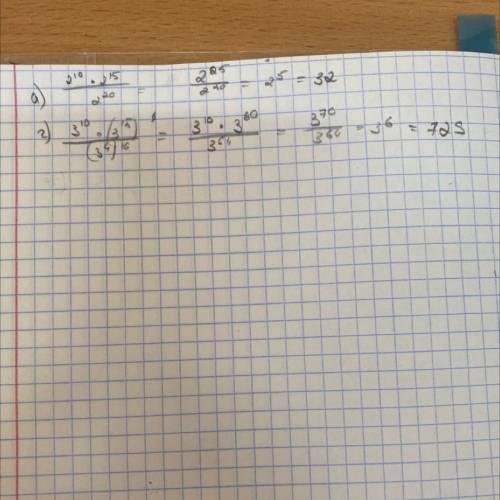 а) 2¹⁰ · 2¹⁵ / 2²⁰ = 2²⁵ / 2²⁰ = 2⁵ = 32
г) 3¹⁰ · (3¹⁵) / (3⁴)¹⁶ = 3¹⁰ · 3⁶⁰ / 3⁶⁴ = 3⁷⁰ / 3⁶⁴ = 3⁶ = 729